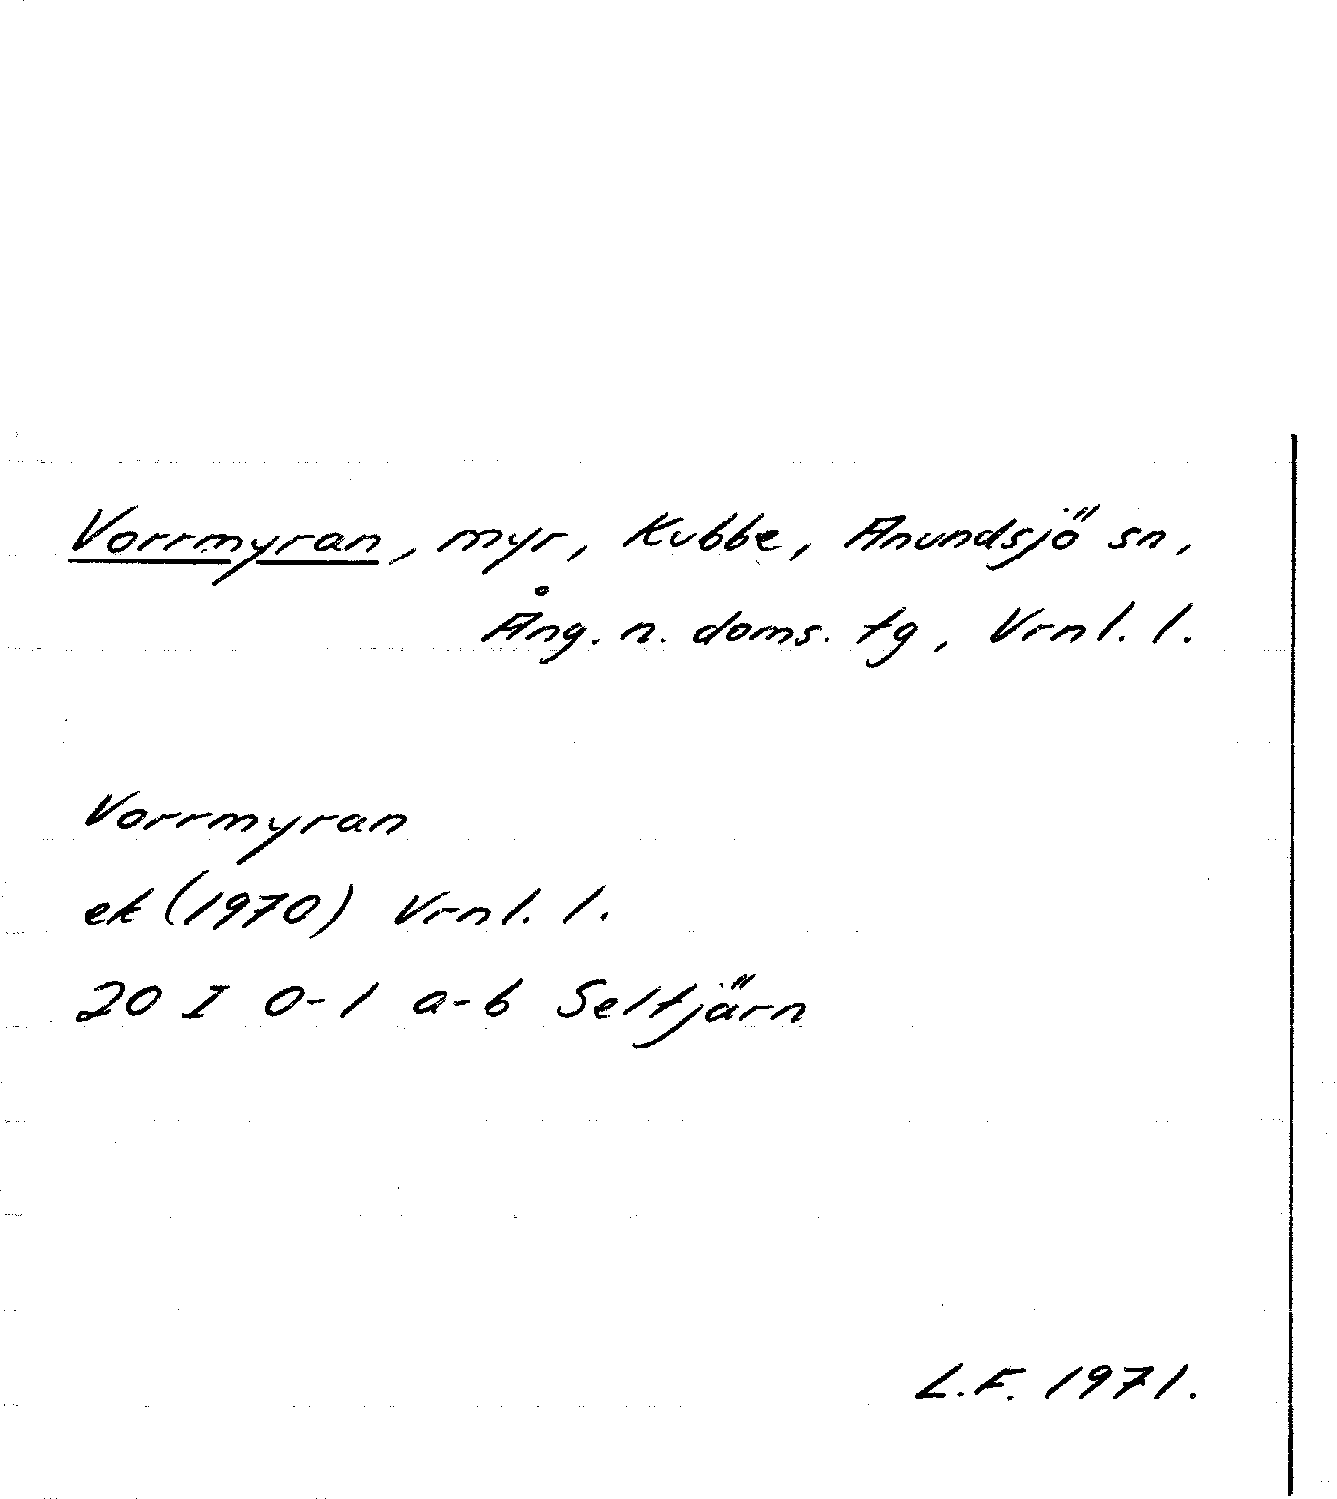 Vorrmyran, myr, Kubbe, Anundsjö sn,
Ång. n. doms. tg, Vrnl. l.
Vorrmyran
ek (1970) Vrnl. l.
20 I 0-1 a-b Seltjärn
L.F. 1971.